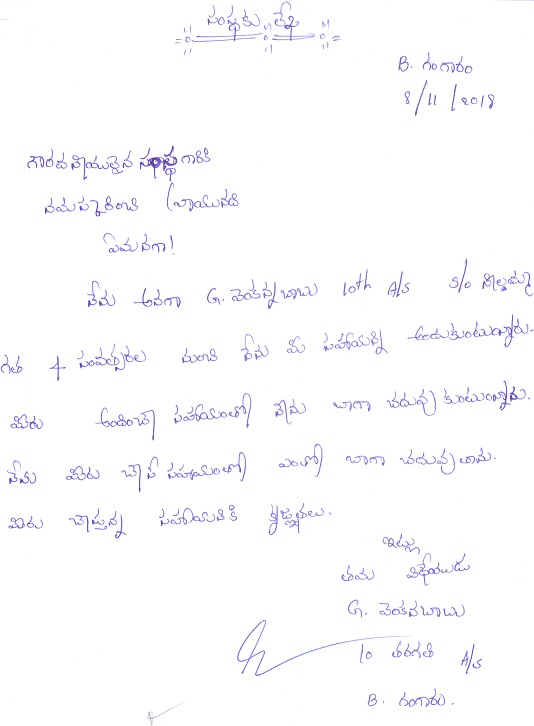 సంస్థకు లేఖ
B. గంగారం
8/11/2018
గౌరవనీయులైన సంస్థ గారికి
నమస్కరించి వ్రాయునది
ఏమనగా!
నేను అనగా G. వెంకన్నబాబు 10th A/S S/o
గత 4 సంవత్సరాల నుంచి నేను మీ సహాయాన్ని అందుకుంటున్నాను.
మీరు అందించే సహాయంతో నేను బాగా చదువుకుంటున్నాను.
నేను మీరు చేసే సహాయంతో ఎంతో బాగా చదువుతాను.
మీరు చేస్తున్న సహాయనికి కృతజ్ఞతలు.
ఇట్లు
తమ విధేయుడు
G. వెంకనబాబు
10 తరగతి A/S
B. గంగారు.